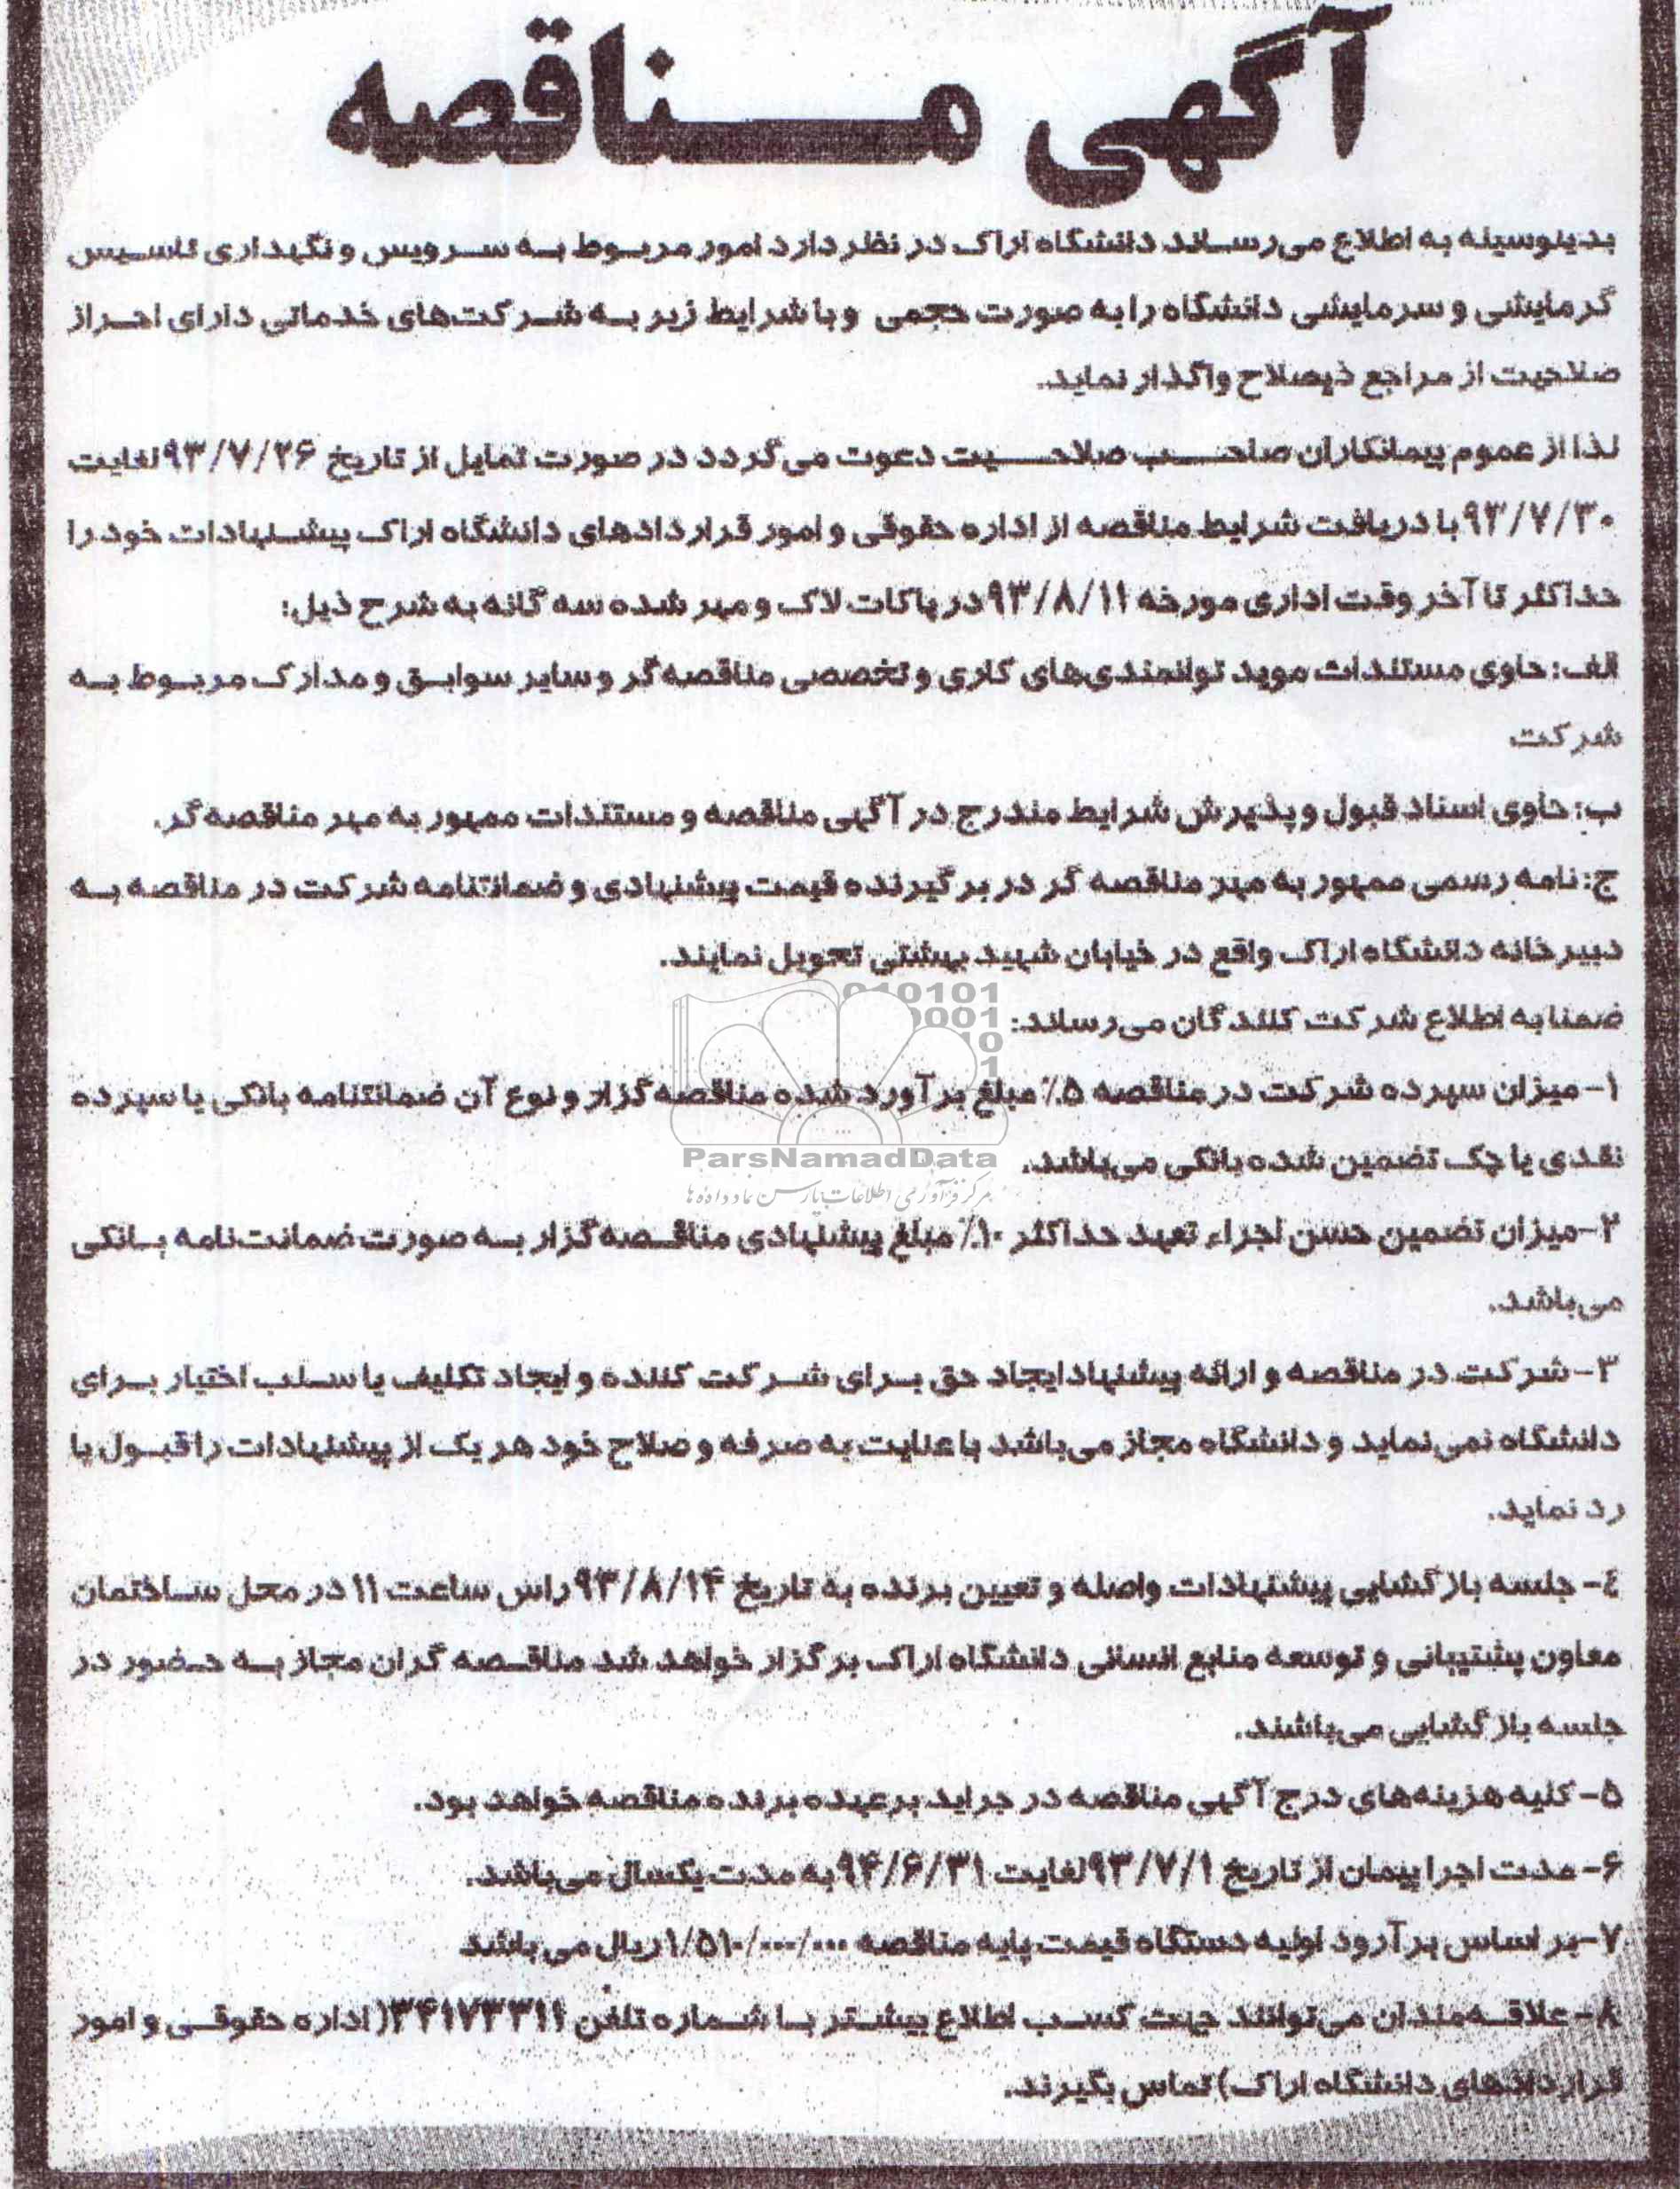 آگهی مناقصه
بدینوسیله به اطلاع می‌رساند دانشگاه اراک در نظر دارد امور مربوط به سرویس و نگهداری تاسیس
گرمایشی و سرمایشی دانشگاه را به صورت حجمی و با شرایط زیر به شرکت‌های خدماتی دارای احراز
صلاحیت از مراجع ذیصلاح واگذار نماید.
لذا از عموم پیمانکاران صاحب صلاحیت دعوت می‌گردد در صورت تمایل از تاریخ ۹۳/۷/۲۶ لغایت
۹۳/۷/۳۰ با دریافت شرایط مناقصه از اداره حقوقی و امور قراردادهای دانشگاه اراک پیشنهادات خود را
حداکثر تا آخر وقت اداری مورخه ۹۳/۸/۱۱ در پاکات لاک و مهر شده سه گانه به شرح ذیل:
الف: حاوی مستندات موید توانمندی‌های کاری و تخصصی مناقصه‌گر و سایر سوابق و مدارک مربوط به
شرکت
ب: حاوی اسناد قبول و پذیرش شرایط مندرج در آگهی مناقصه و مستندات ممهور به مهر مناقصه‌گر.
ج: نامه رسمی ممهور به مهر مناقصه گر در برگیرنده قیمت پیشنهادی و ضمانتنامه شرکت در مناقصه به
دبیرخانه دانشگاه اراک واقع در خیابان شهید بهشتی تحویل نمایند.
ضمنا به اطلاع شرکت کنندگان می‌رساند:
۱- میزان سپرده شرکت در مناقصه ۵٪ مبلغ برآورد شده مناقصه‌گزار و نوع آن ضمانتنامه بانکی یا سپرده
نقدی یا چک تضمین شده بانکی می‌باشد.
۲- میزان تضمین حسن اجراء تعهد حداکثر ۱۰٪ مبلغ پیشنهادی مناقصه‌گزار به صورت ضمانت‌نامه بانکی
می‌باشد.
۳- شرکت در مناقصه و ارائه پیشنهاد ایجاد حق برای شرکت کننده و ایجاد تکلیف یا سلب اختیار برای
دانشگاه نمی‌نماید و دانشگاه مجاز می‌باشد با عنایت به صرفه و صلاح خود هر یک از پیشنهادات را قبول یا
رد نماید.
٤- جلسه بازگشایی پیشنهادات واصله و تعیین برنده به تاریخ ۹۳/۸/۱۴ راس ساعت ۱۱ در محل ساختمان
معاون پشتیبانی و توسعه منابع انسانی دانشگاه اراک برگزار خواهد شد مناقصه گران مجاز به حضور در
جلسه بازگشایی می‌باشند.
۵- کلیه هزینه‌های درج آگهی مناقصه در جراید برعهده برنده مناقصه خواهد بود.
۶- مدت اجرا پیمان از تاریخ ۹۳/۷/۱ لغایت ۹۴/۶/۳۱ به مدت یکسال می‌باشد.
۷- بر اساس برآرود اولیه دستگاه قیمت پایه مناقصه ۱/۵۱۰/۰۰۰/۰۰۰ ریال می باشد
۸- علاقه‌مندان می‌توانند جهت کسب اطلاع بیشتر با شماره تلفن ۳۴۱۷۳۳۱۱ (اداره حقوقی و امور
قراردادهای دانشگاه اراک) تماس بگیرند.
010101
0001
10
1
ParsNamadData
مرکز فرآوری اطلاعات پارس نماد داده‌ها